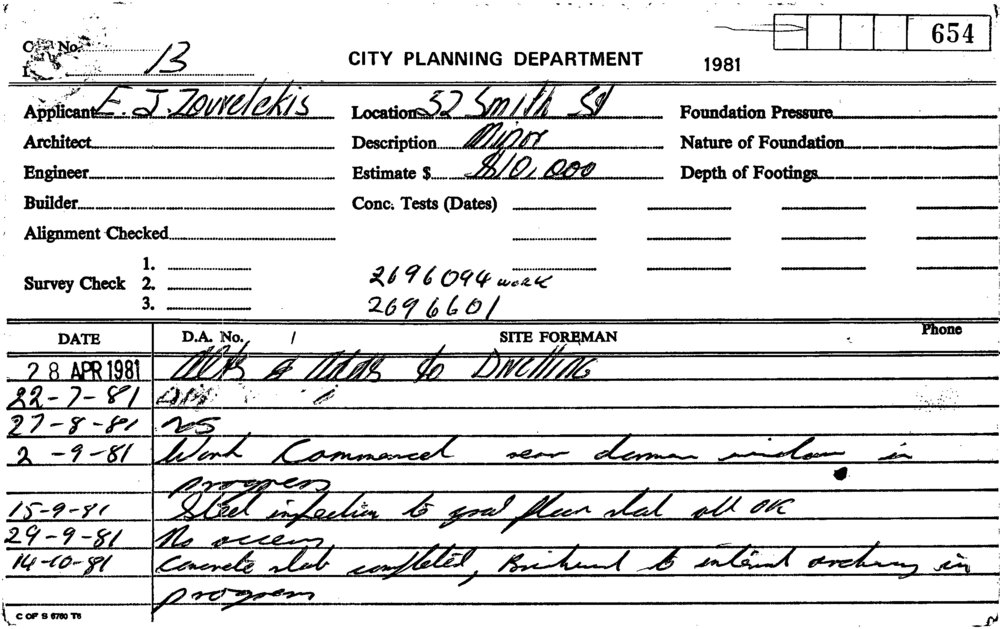 No. 13
CITY PLANNING DEPARTMENT 1981 654
Applicant E. J. Zouvelekis Location 32 Smith St Foundation Pressure
Architect Description Minor Nature of Foundation
Engineer Estimate $ $10,000 Depth of Footings
Builder Conc. Tests (Dates)
Alignment Checked
1.
Survey Check 2. 2696094 WORK
3. 2696601
DATE D.A. No. / SITE FOREMAN Phone
28 APR 1981 Alts & Adds to Dwelling
22-7-81
27-8-81 NS
2-9-81 Work Commenced rear dormer window in
progress
15-9-81 Steel inspection to grd floor slab all OK
29-9-81 No access
14-10-81 Concrete slab completed, Brickwork to internal archway in
progress
C OF S 6760 T6